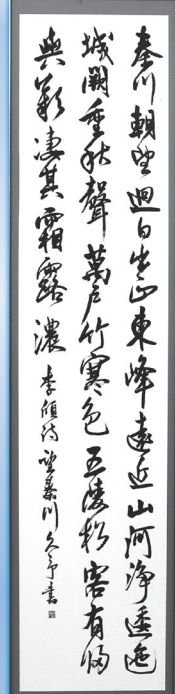 秦川朝望迥日出正東峰遠近山河淨逶迤
城闕重秋聲萬戶竹寒色五陵松客有歸
與歎凄其霜露濃 李頎詩望秦川 久予書